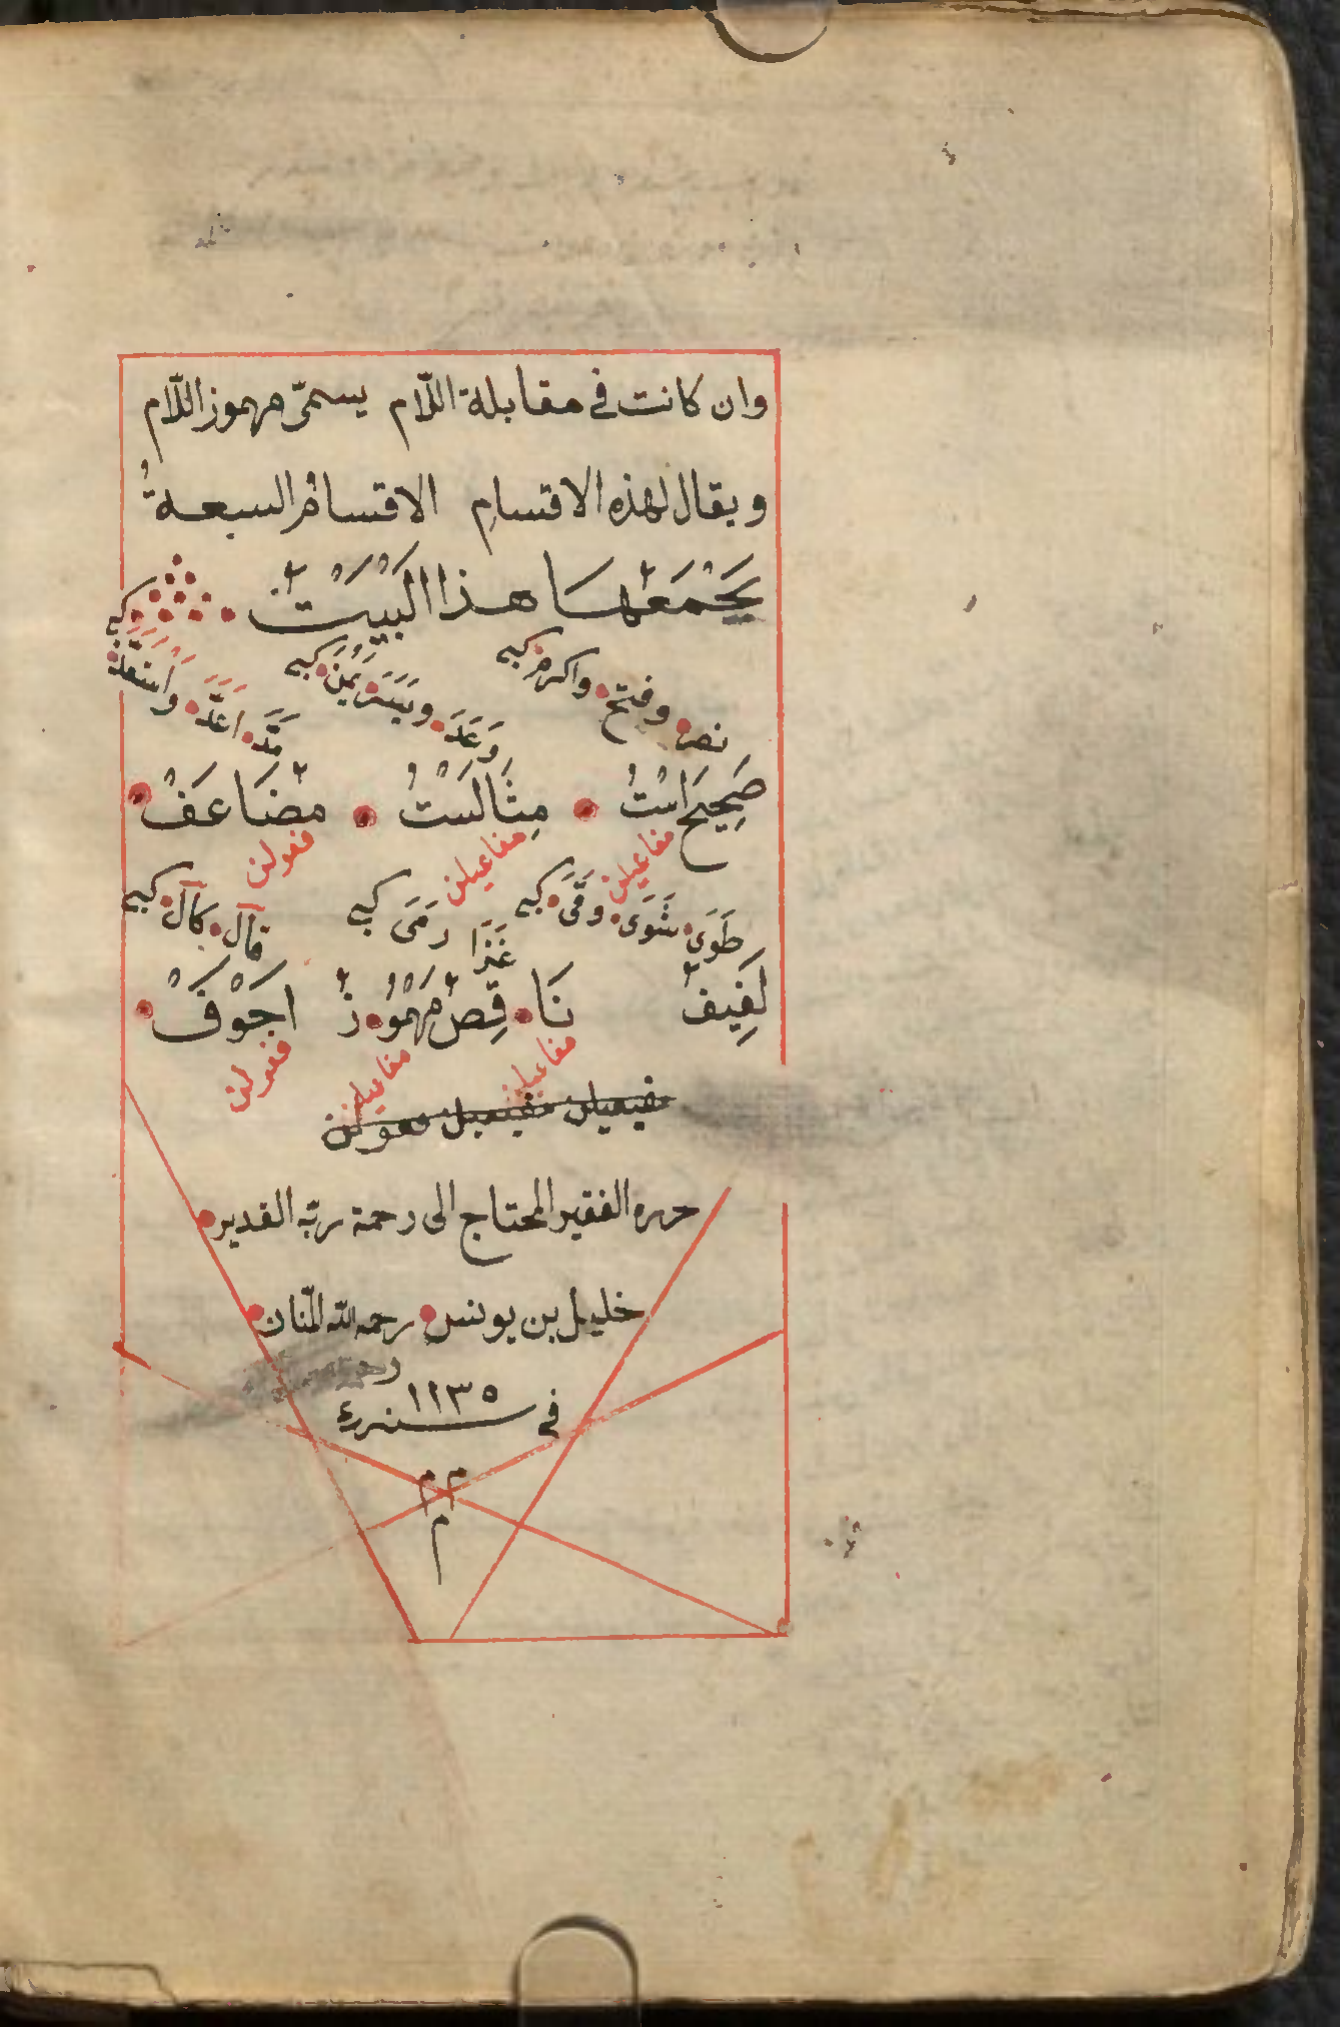 وان كانت في مقابلة اللّام يسمّى مهموز اللّام
ويقال لهذه الاقسامِ الاقسامُ السبعةُ
يَجْمَعُهَا هذا البَيْتُ
نصر وفتح واكرم كبى وَعَدَ ويَسَرَ يَمُنَ كبى مَدَّ اعَدَّ واسْتَعَدَّ كبى
صَحِيحَ اسْتُ مِثَالَسْتُ مُضَاعَفْ
مفاعيلن مفاعيلن فعولن
طَوَى شَوَى وَقَى كبى غَزَا رَمَى كبى قال كال كبى
لَفِيفُ نَاقِصُ مَهْمُوزُ اَجْوَفْ
مفاعيلن مفاعيلن فعولن
مفيعيلن مفيعيل فعولن
حرره الفقير المحتاج الى رحمة ربّه القدير
خليل بن يونس رحمه الله المنّان
في سنة ١١٣٥
م م
م